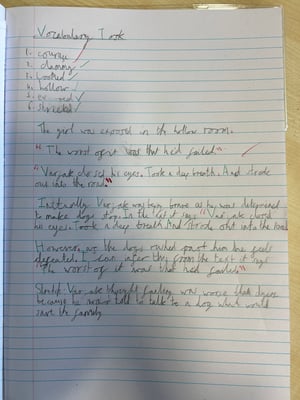 Vocabulary Task
1. course
2. clammy
3.
4. hollow
5.
6. streets
The girl was exposed in the hollow room.
"The worst of it was that he'd failed"
"Varjak closed his eyes. Took a deep breath. And strode out into the road."
Instantly Varjak was being brave as he was determined
to make dogs stop. In the text it says "Varjak closed
his eyes. Took a deep breath And strode out into the road
However, as the dogs rushed past him he feels
defeated. I can infer this from the text it says
"The worst of it was that he'd failed"
Varjak thought failing was worse than dying
because he never told to talk to a dog which would
save the family